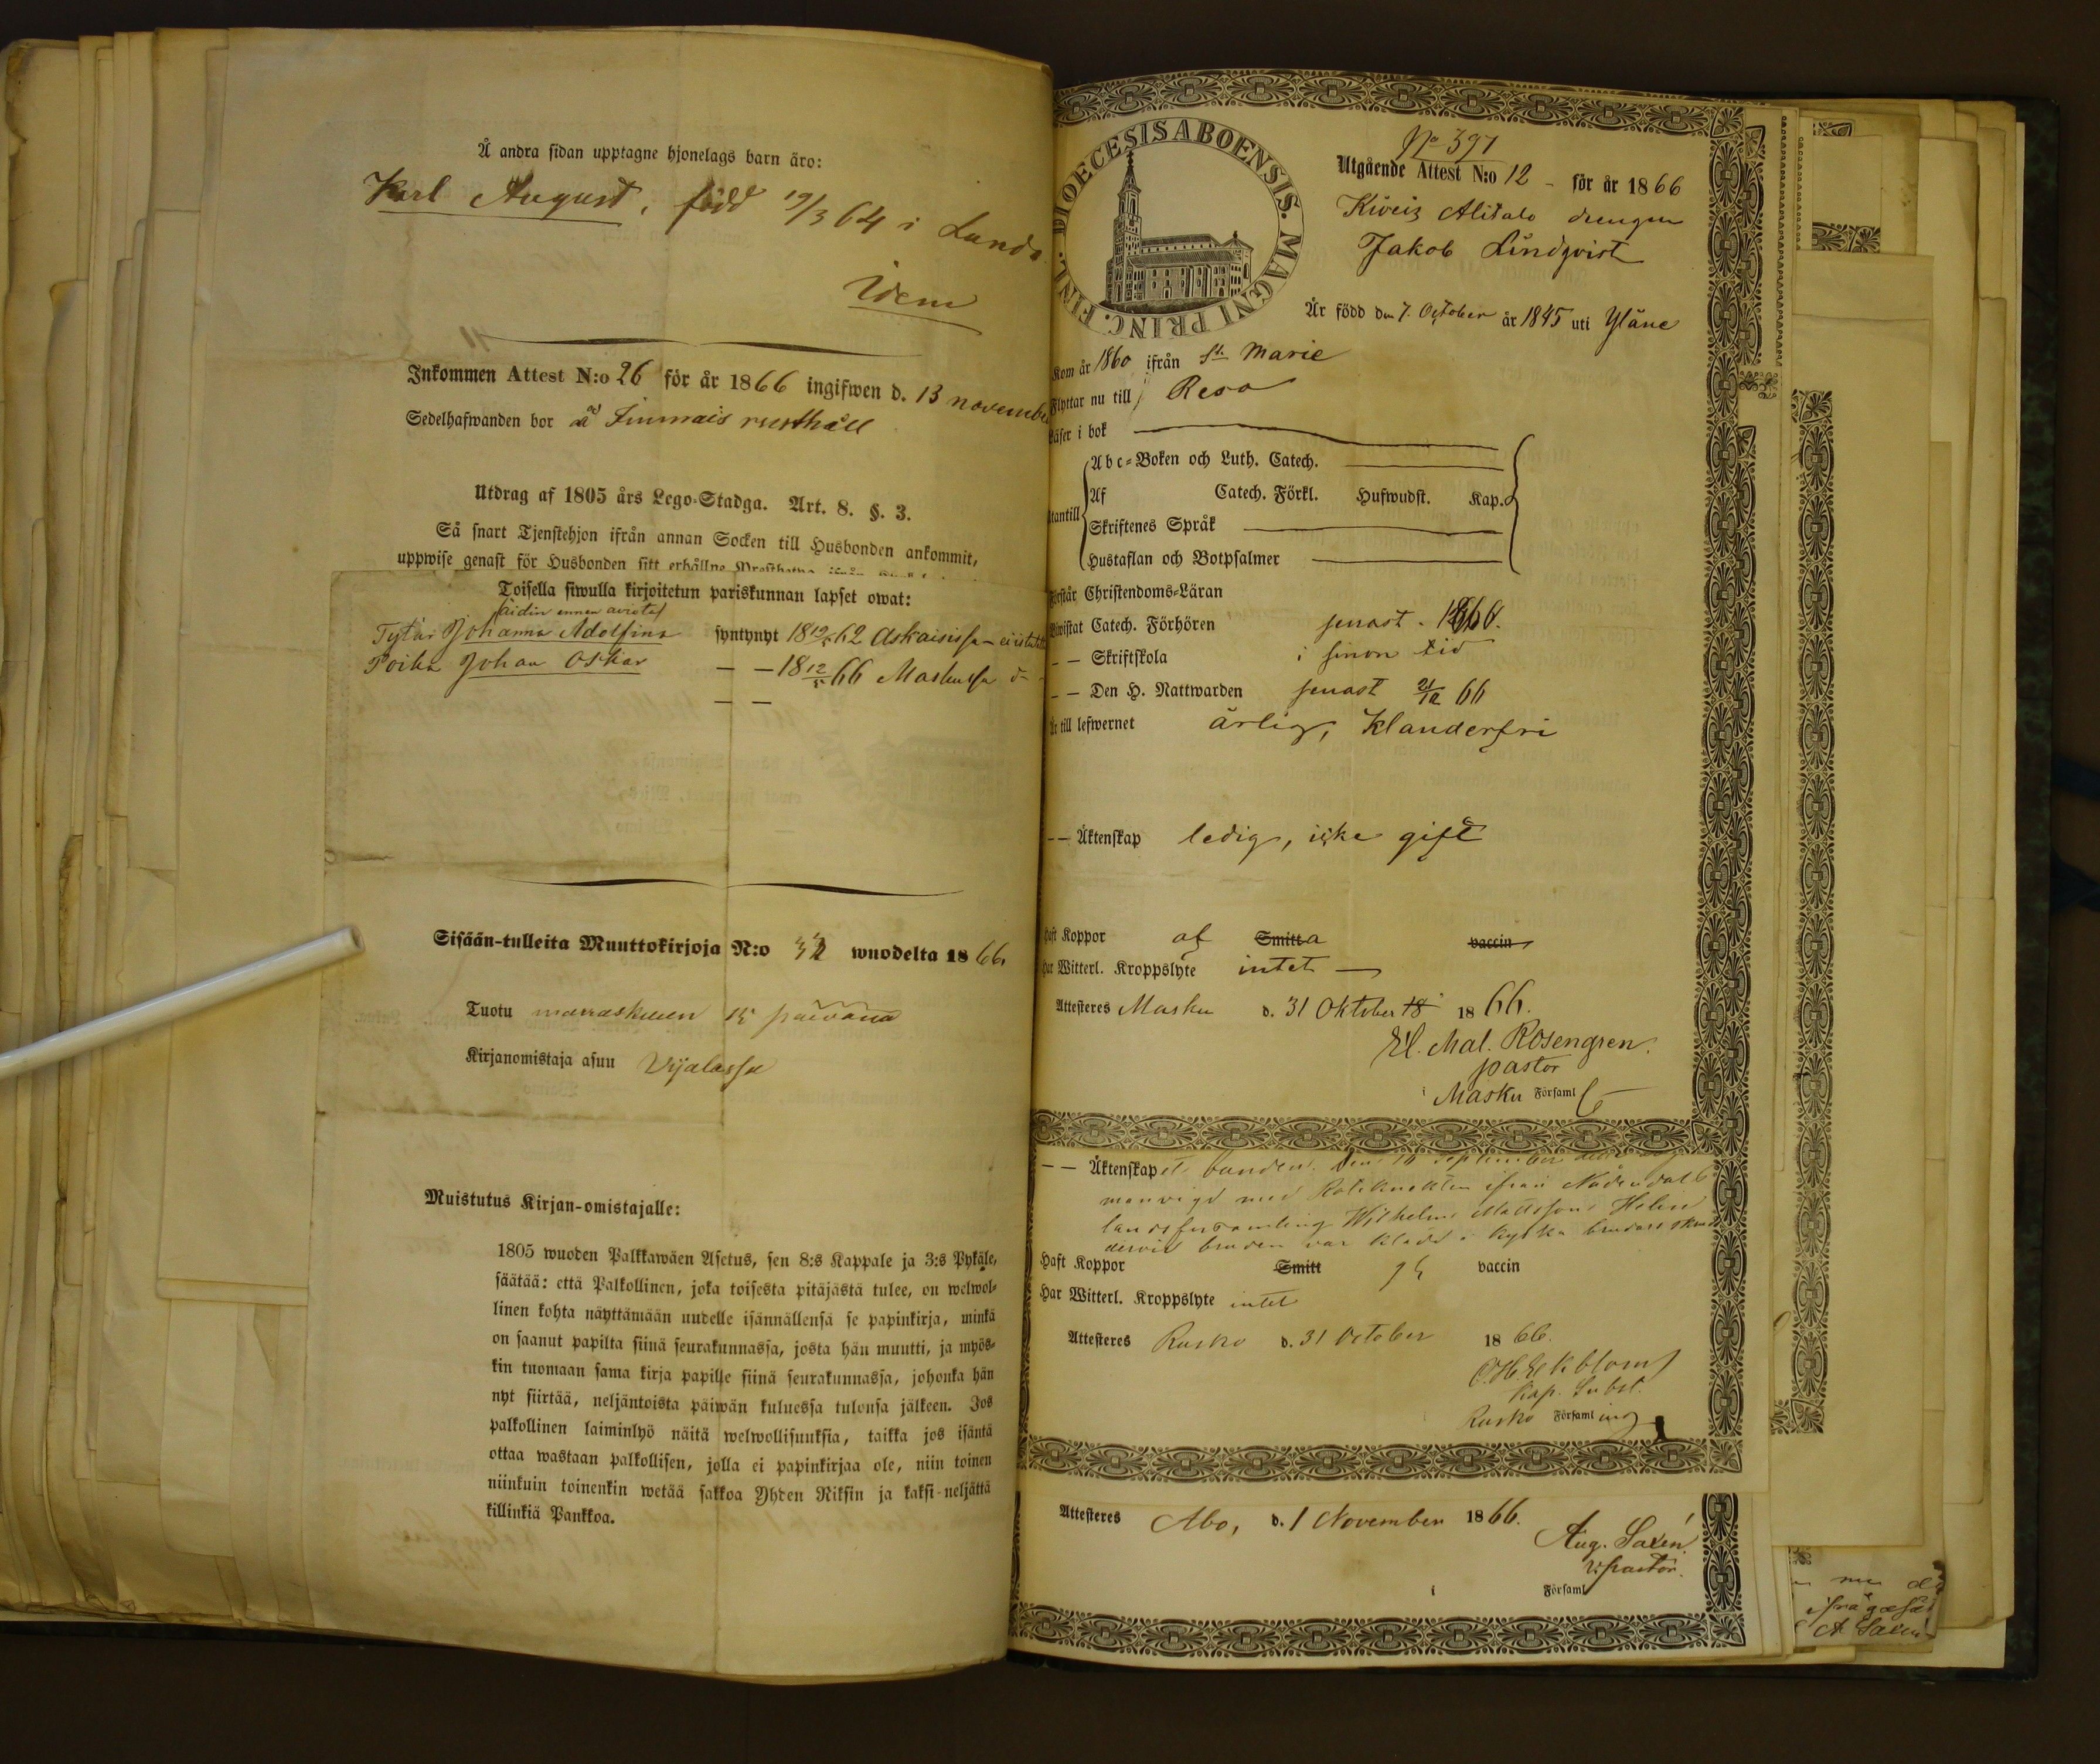 Å andra sidan upptagne hjonelags barn äro:
Karl August, född 19/3 64 i Lundo
Idem
Inkommen Attest N:o 26 för år 1866 ingifwen d. 13 november
Sedelhafwanden bor å rusthåll
Utdrag af 1805 års Lego-Stadga. Art. 8. §. 3.
Så snart Tjenstehjon ifrån annan Socken till Husbonden ankommit,
uppwise genast för Husbonden sitt erhållne
Toisella siwulla kirjoitetun pariskunnan lapset owat:
äidin ennen
Tytär Johanna Adolfina syntynyt 18 62 Askaisissa
Poika Johan Oskar — — 18 12/5 66 Maskussa
— —
Sisään-tulleita Muuttokirjoja N:o wuodelta 1866.
Tuotu marraskuun 15 päivänä
Kirjanomistaja asuu
Muistutus Kirjan-omistajalle:
1805 wuoden Palkkawäen Asetus, sen 8:s Kappale ja 3:s Pykäle,
säätää: että Palkollinen, joka toisesta pitäjästä tulee, on welwol-
linen kohta näyttämään uudelle isännällensä se papinkirja, minkä
on saanut papilta siinä seurakunnassa, josta hän muutti, ja myös-
kin tuomaan sama kirja papille siinä seurakunnassa, johonka hän
nyt siirtää, neljäntoista päiwän kuluessa tulonsa jälkeen. Jos
palkollinen laiminlyö näitä welwollisuuksia, taikka jos isäntä
ottaa wastaan palkollisen, jolla ei papinkirjaa ole, niin toinen
niinkuin toinenkin wetää sakkoa Yhden Riksin ja kaksi-neljättä
killinkiä Pankkoa.
DIOECESIS ABOENSIS. MAGNI PRINC. FINL.
No 391
Utgående Attest N:o 12 - för år 1866
Alitalo drengen
Jakob Lindqvist
Är född den 7. October år 1845 uti Yläne
Kom år 1860 ifrån St. Marie
Flyttar nu till Reso
Läser i bok
Abc-Boken och Luth. Catech.
Utantill
Af Catech. Förkl. Hufwudst. Kap.
Skriftenes Språk
Hustaflan och Botpsalmer
Förstår Christendoms-Läran
Biwistat Catech. Förhören senast
— — Skriftskola i sinom tid
— — Den H. Nattwarden senast 66
Är till lefwernet ärlig, klanderfri
— — Äktenskap ledig, icke gift
Haft Koppor af Smitta vaccin
Har Witterl. Kroppslyte intet —
Attesteres Masku d. 31 Oktober 18 1866.
Mal. Rosengren.
pastor
i Masku Församl
— — Äktenskapet bunden, den september
med Roteknekten ifrån Nådendals
landsförsamling Wilhelm Mattsson Helin
bruden var klädd i kyska
Haft Koppor Smitt vaccin
Har Witterl. Kroppslyte intet
Attesteres Rusko d. 31 October 1866.
Ekblom
Kap. Subst.
Rusko Församling
Attesteres Åbo, d. 1 November 1866.
Aug. Saxén
v: pastor.
i Församl
A. Saxén